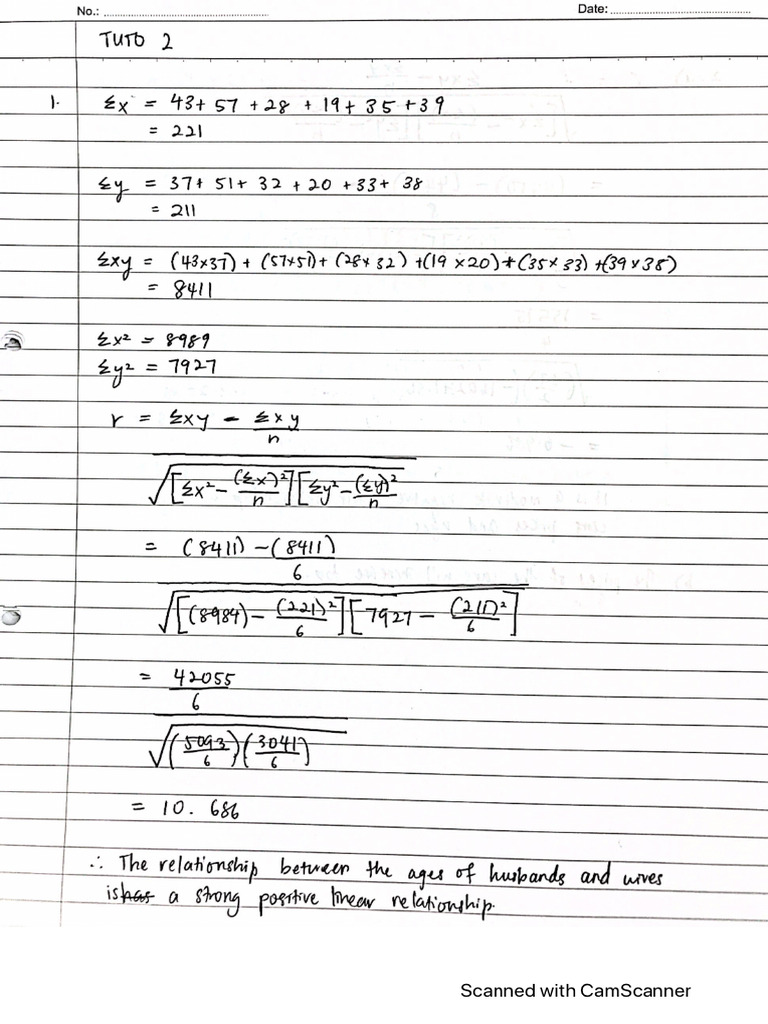 No.: Date:
TUTO 2
1. Σx = 43+ 57 +28 + 19+ 35 +39
= 221
Σy = 37+ 51+ 32 + 20 +33+ 38
= 211
Σxy = (43×37) + (57×51)+ (28×32) +(19×20)+(35×33)+(39×38)
= 8411
Σx² = 8989
Σy² = 7927
r = Σxy - Σxy
n
√[Σx²-(Σx)²/n][Σy²-(Σy)²/n]
= (8411)-(8411)
6
√[(8984)-(221)²/6][7927-(211)²/6]
= 42055
6
√(5093/6)(3041/6)
= 10.686
∴ The relationship between the ages of husbands and wives
is has a strong positive linear relationship.
Scanned with CamScanner